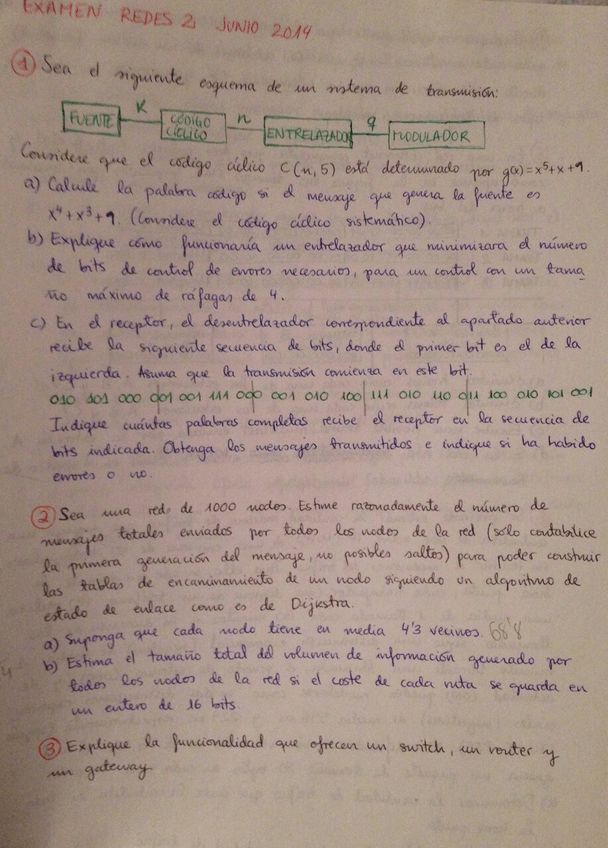 EXAMEN REDES 2 JUNIO 2014
① Sea el siguiente esquema de un sistema de transmisión:
FUENTE K CÓDIGO CÍCLICO n ENTRELAZADOR q MODULADOR
Considere que el código cíclico C(n,5) está determinado por g(x)=x⁵+x+1.
a) Calcule la palabra código si el mensaje que genera la fuente es
x⁴+x³+1. (Considere el código cíclico sistemático).
b) Explique cómo funcionaría un entrelazador que minimizara el número
de bits de control de errores necesarios, para un control con un tama
ño máximo de ráfagas de 4.
c) En el receptor, el desentrelazador correspondiente al apartado anterior
recibe la siguiente secuencia de bits, donde el primer bit es el de la
izquierda. Asuma que la transmisión comienza en este bit.
010 101 000 001 001 111 000 001 010 100 111 010 110 011 100 010 101 001
Indique cuántas palabras completas recibe el receptor en la secuencia de
bits indicada. Obtenga los mensajes transmitidos e indique si ha habido
errores o no.
② Sea una red de 1000 nodos. Estime razonadamente el número de
mensajes totales enviados por todos los nodos de la red (sólo contabilice
la primera generación del mensaje, no posibles saltos) para poder construir
las tablas de encaminamiento de un nodo siguiendo un algoritmo de
estado de enlace como es de Dijkstra.
a) Suponga que cada nodo tiene en media 4'3 vecinos. 68'8
b) Estima el tamaño total del volumen de información generado por
todos los nodos de la red si el coste de cada ruta se guarda en
un entero de 16 bits.
③ Explique la funcionalidad que ofrecen un switch, un router y
un gateway